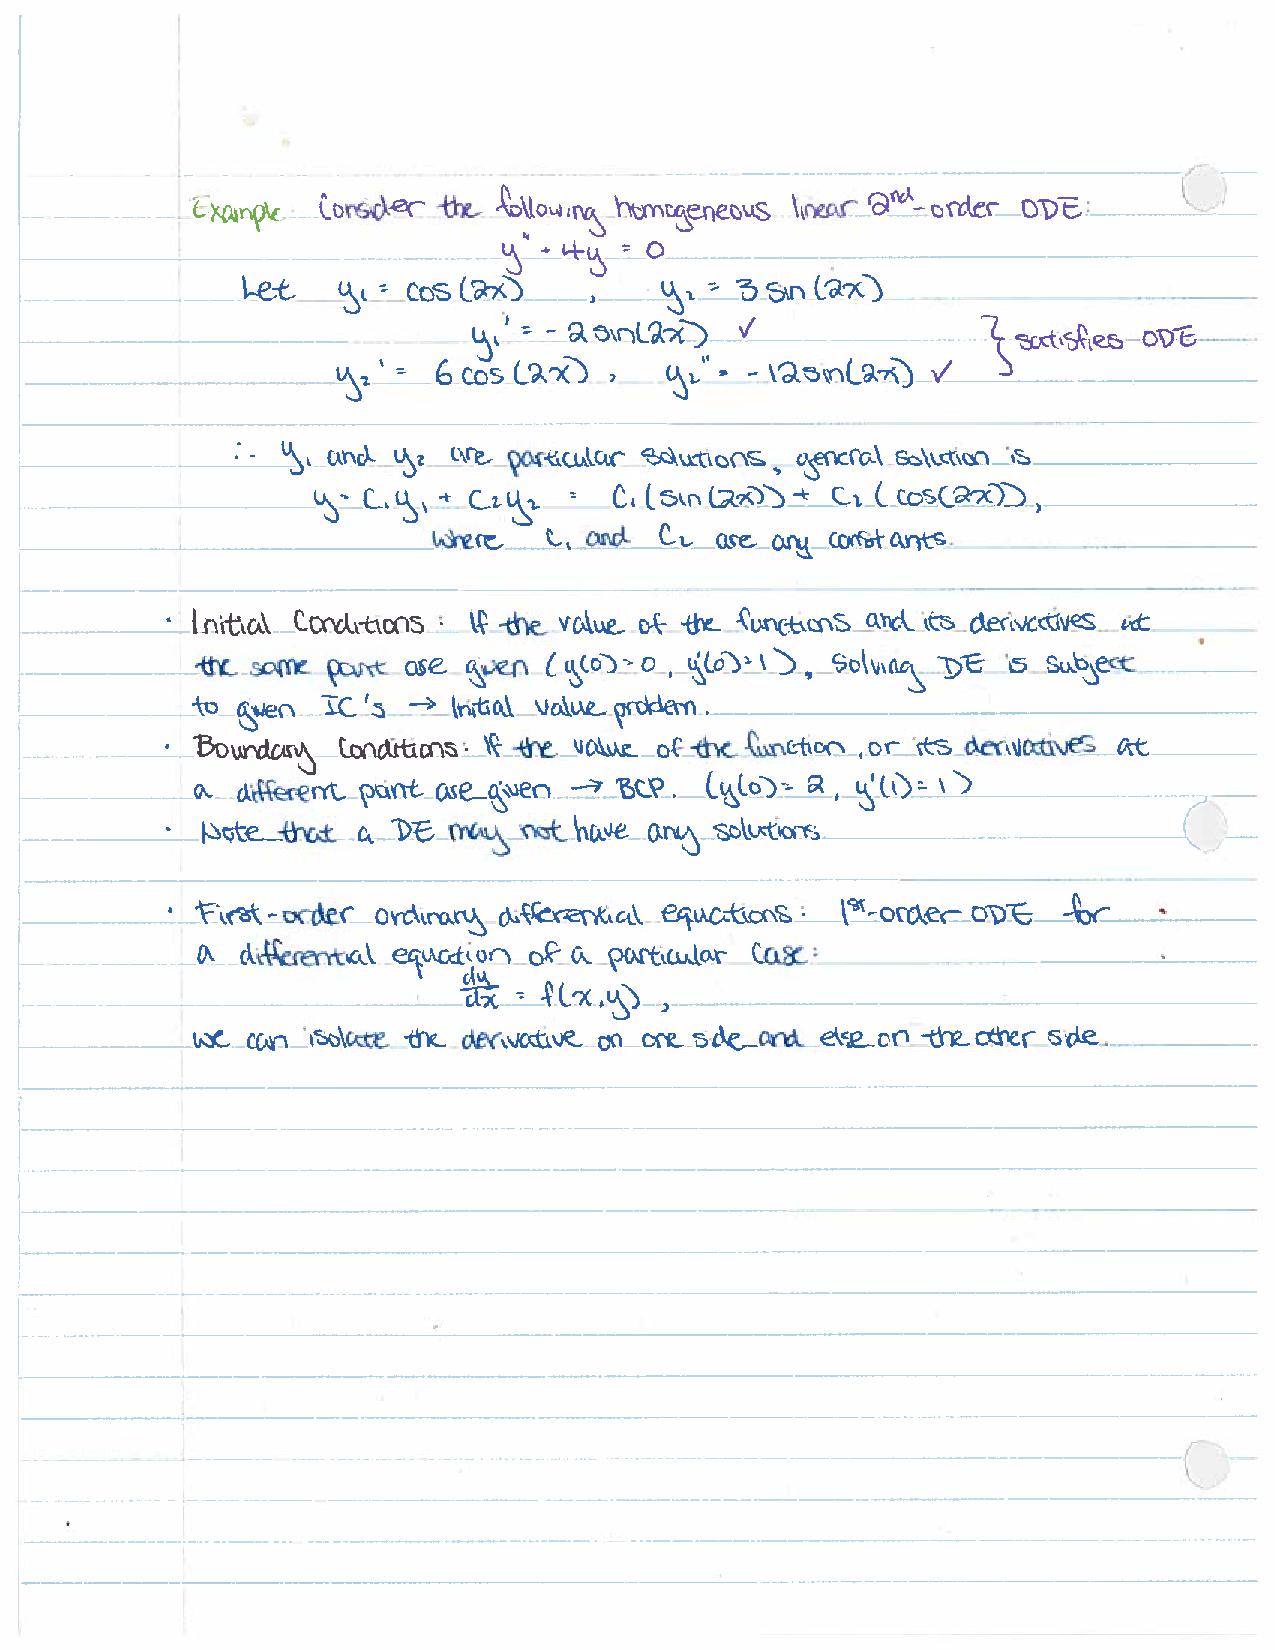 Example: Consider the following homogeneous linear 2nd-order ODE:
y'' + 4y = 0
Let y₁ = cos(2x) , y₂ = 3 sin(2x)
y₁' = -2 sin(2x) ✓
y₂' = 6 cos(2x) , y₂'' = -12 sin(2x) ✓ } satisfies ODE
∴ y₁ and y₂ are particular solutions, general solution is
y = C₁y₁ + C₂y₂ = C₁(sin(2x)) + C₂(cos(2x)),
where C₁ and C₂ are any constants.
· Initial Conditions: If the value of the functions and its derivatives at
the same point are given (y(0)=0, y'(0)=1), solving DE is subject
to given IC's → Initial value problem.
· Boundary Conditions: If the value of the function, or its derivatives at
a different point are given → BCP. (y(0)=2, y'(1)=1)
· Note that a DE may not have any solutions.
· First-order ordinary differential equations: 1st-order ODE for
a differential equation of a particular case:
dy/dx = f(x,y) ,
we can isolate the derivative on one side and else on the other side.